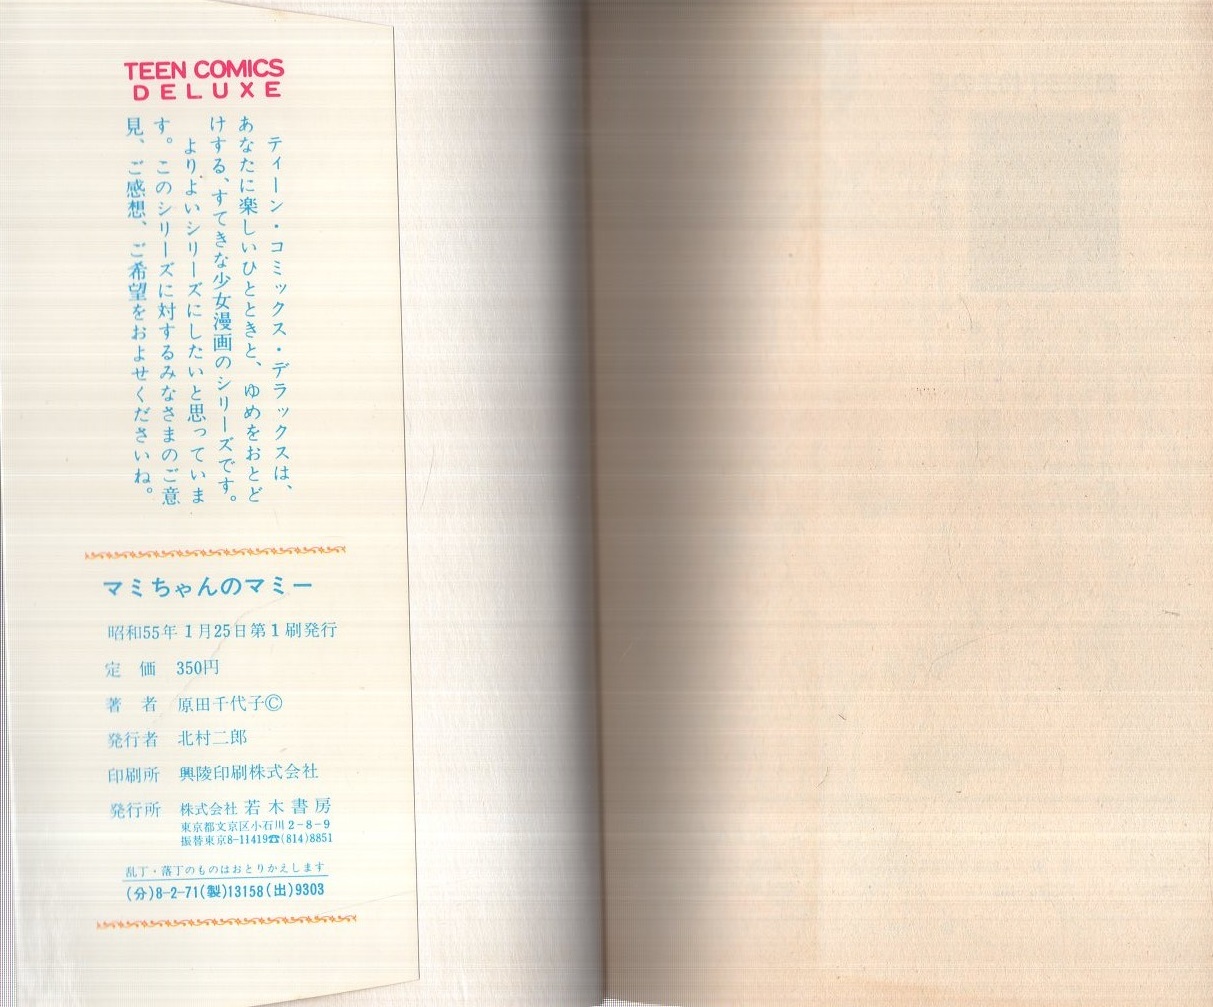 TEEN COMICS
DELUXE
ティーン・コミックス・デラックスは、
あなたに楽しいひとときと、ゆめをおとど
けする、すてきな少女漫画のシリーズです。
よりよいシリーズにしたいと思っていま
す。このシリーズに対するみなさまのご意
見、ご感想、ご希望をおよせくださいね。
マミちゃんのマミー
昭和55年1月25日第1刷発行
定 価 350円
著 者 原田千代子©
発行者 北村二郎
印刷所 興陵印刷株式会社
発行所 株式会社 若木書房
東京都文京区小石川2-8-9
振替東京8-11419☎(814)8851
乱丁・落丁のものはおとりかえします
(分)8-2-71(製)13158(出)9303